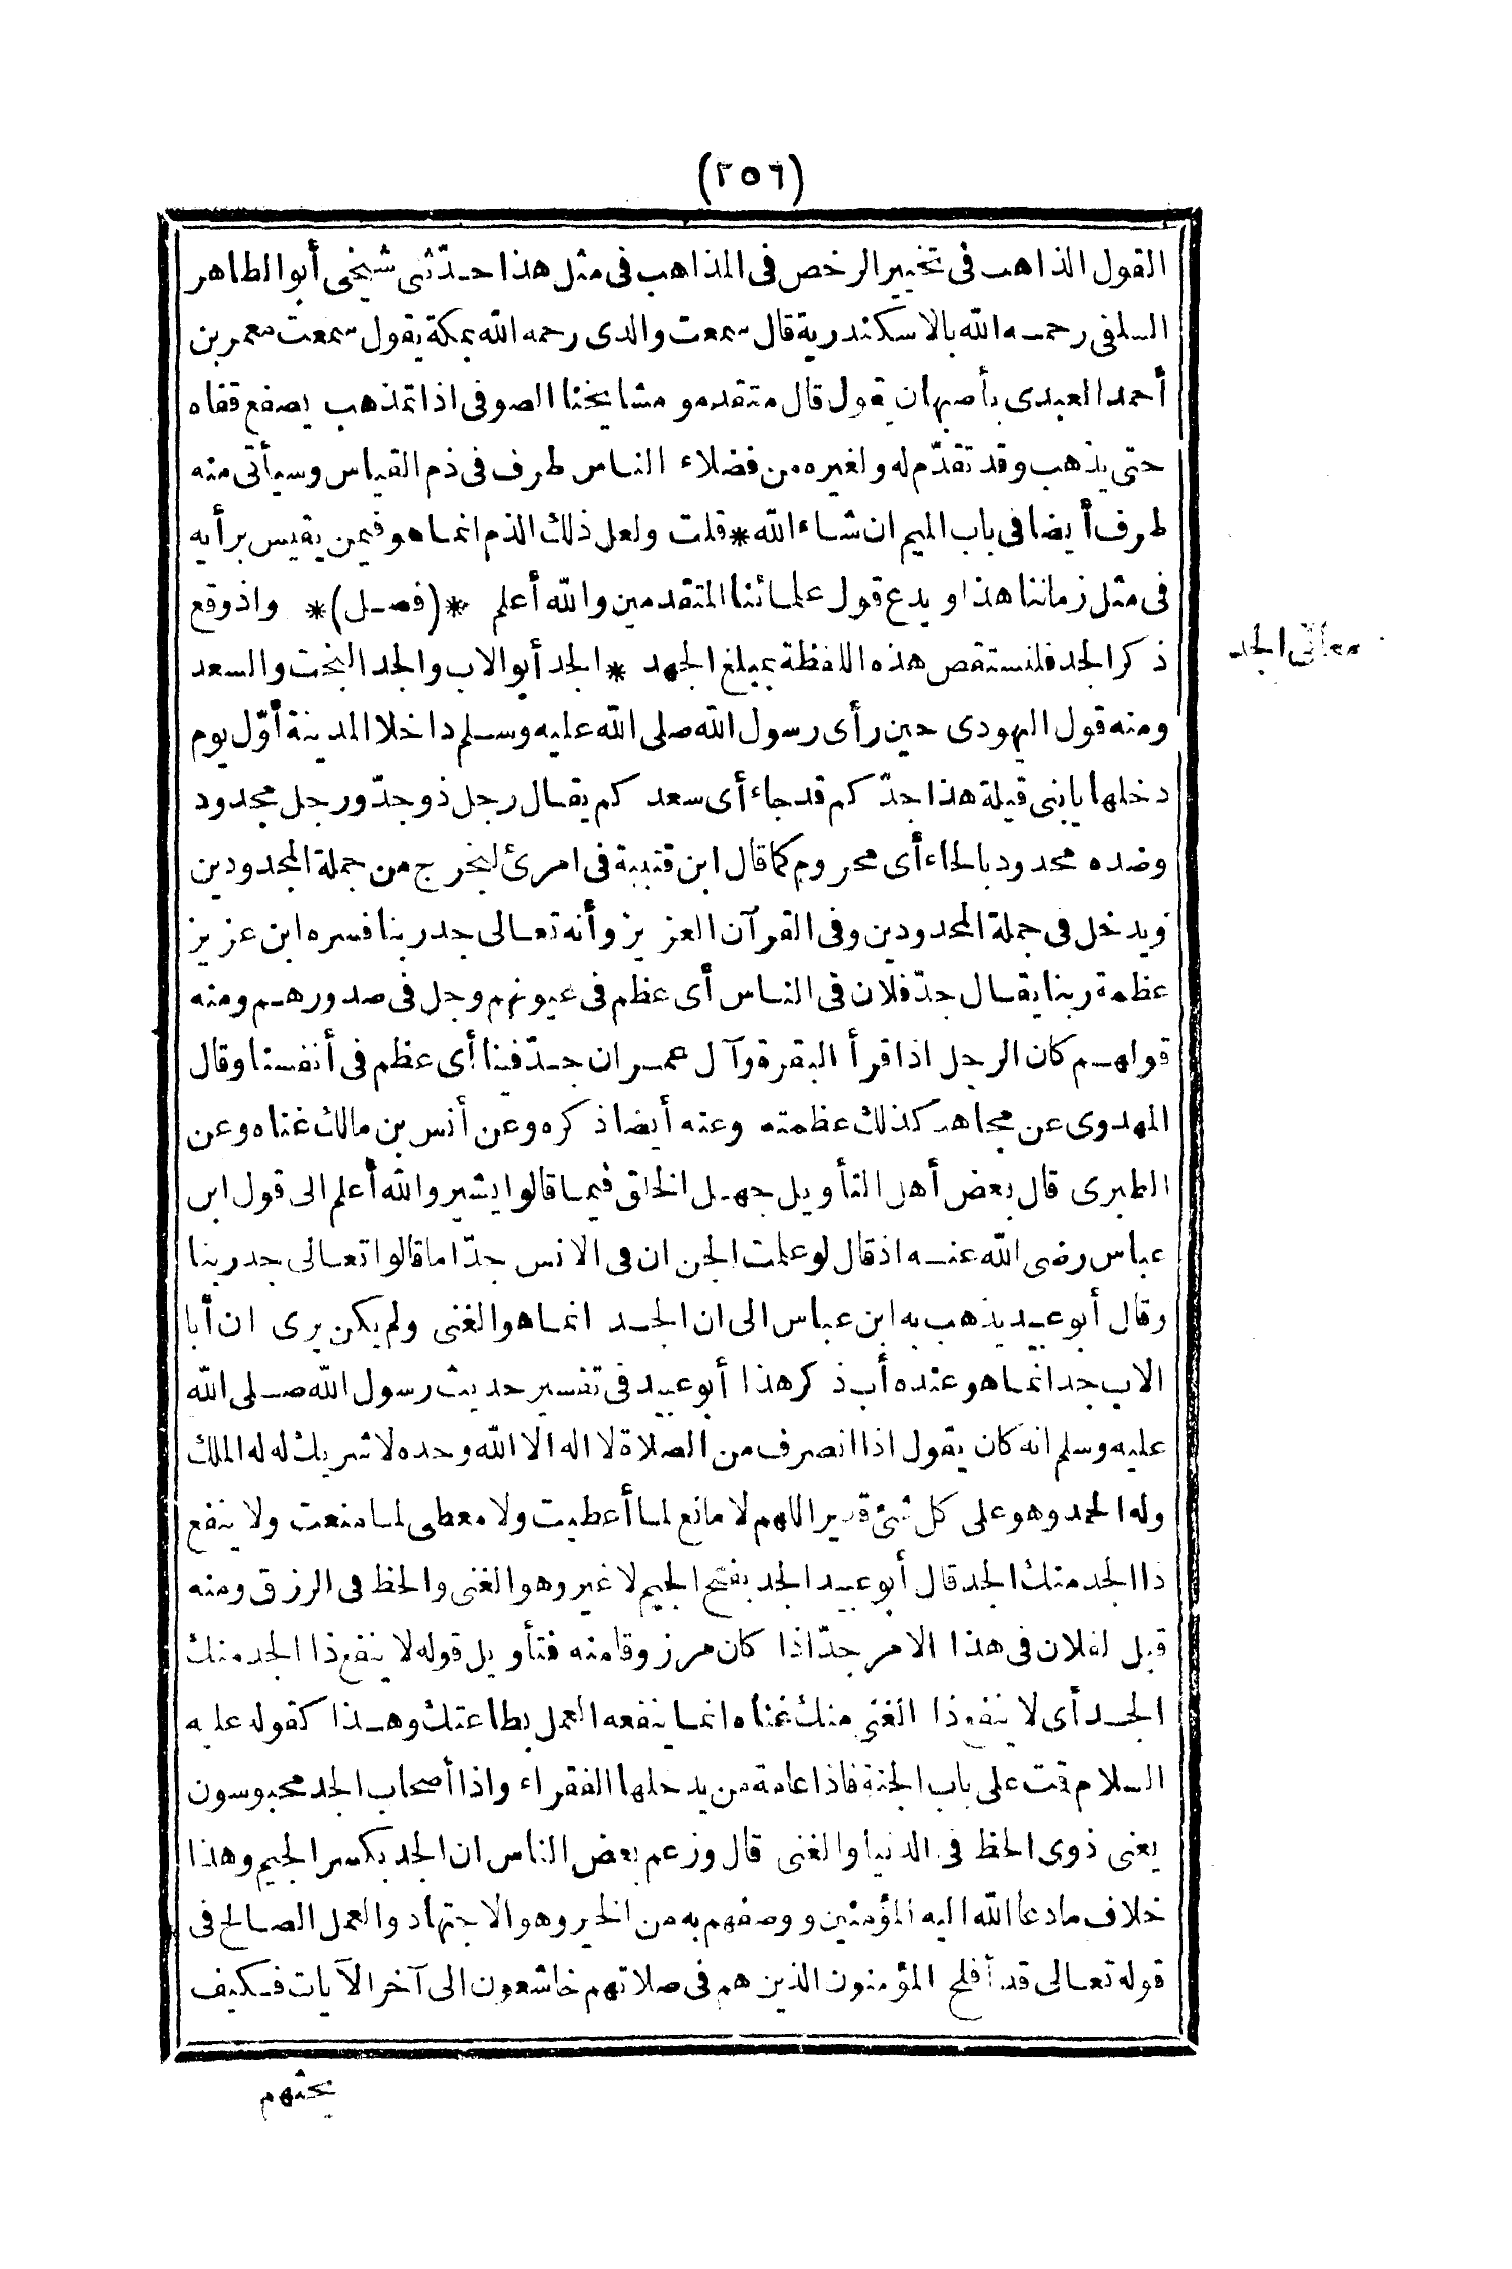 (٢٥٦)
القول الذاهب فى تخيير الرخص فى المذاهب فى مثل هذا حدّثنى شيخى أبو الطاهر
السلفى رحمه الله بالاسكندرية قال سمعت والدى رحمه الله بمكة يقول سمعت معمر بن
أحمد العبدى بأصبهان يقول قال متقدمو مشايخنا الصوفى اذا تمذهب يصفع قفاه
حتى يذهب وقد تقدّم له ولغيره من فضلاء الناس طرف فى ذم القياس وسيأتى منه
طرف أيضا فى باب الميم ان شاء الله * قلت ولعل ذلك الذم انما هو فيمن يقيس برأيه
فى مثل زماننا هذا ويدع قول علمائنا المتقدمين والله أعلم *(فصل)* واذ وقع
ذكر الجد فلنستقص هذه اللفظة بمبلغ الجهد * الجد أبو الاب والجد البخت والسعد
معانى الجد
ومنه قول اليهودى حين رأى رسول الله صلى الله عليه وسلم داخلا المدينة أوّل يوم
دخلها يا بنى قيلة هذا جدّكم قد جاء أى سعدكم يقال رجل ذو جدّ ورجل مجدود
وضده محدود بالحاء أى محروم كما قال ابن قتيبة فى امرئ ليخرج من جملة المجدودين
ويدخل فى جملة المحدودين وفى القرآن العزيز وأنه تعالى جد ربنا فسره ابن عزيز
عظمة ربنا يقال جدّ فلان فى الناس أى عظم فى عيونهم وجل فى صدورهم ومنه
قولهم كان الرجل اذا قرأ البقرة وآل عمران جدّ فينا أى عظم فى أنفسنا وقال
المهدوى عن مجاهد كذلك عظمته وعنه أيضا ذكره وعن أنس بن مالك غناه وعن
الطبرى قال بعض أهل التأويل جهل الخلق فيما قالوا يشير والله أعلم الى قول ابن
عباس رضى الله عنه اذ قال لو علمت الجن ان فى الانس جدّا ما قالوا تعالى جد ربنا
وقال أبو عبيد يذهب به ابن عباس الى ان الجد انما هو الغنى ولم يكن يرى ان أبا
الاب جد انما هو عنده أب ذكر هذا أبو عبيد فى تفسير حديث رسول الله صلى الله
عليه وسلم انه كان يقول اذا انصرف من الصلاة لا اله الا الله وحده لا شريك له له الملك
وله الحمد وهو على كل شئ قدير اللهم لا مانع لما أعطيت ولا معطى لما منعت ولا ينفع
ذا الجد منك الجد قال أبو عبيد الجد بفتح الجيم لا غير وهو الغنى والحظ فى الرزق ومنه
قيل لفلان فى هذا الامر جدّ اذا كان مرزوقا منه فتأويل قوله لا ينفع ذا الجد منك
الجد أى لا ينفع ذا الغنى منك غناه انما ينفعه العمل بطاعتك وهذا كقوله عليه
السلام قمت على باب الجنة فاذا عامة من يدخلها الفقراء واذا أصحاب الجد محبوسون
يعنى ذوى الحظ فى الدنيا والغنى قال وزعم بعض الناس ان الجد بكسر الجيم وهذا
خلاف ما دعا الله اليه المؤمنين ووصفهم به من الخير وهو الاجتهاد والعمل الصالح فى
قوله تعالى قد أفلح المؤمنون الذين هم فى صلاتهم خاشعون الى آخر الآيات فكيف
يحثهم